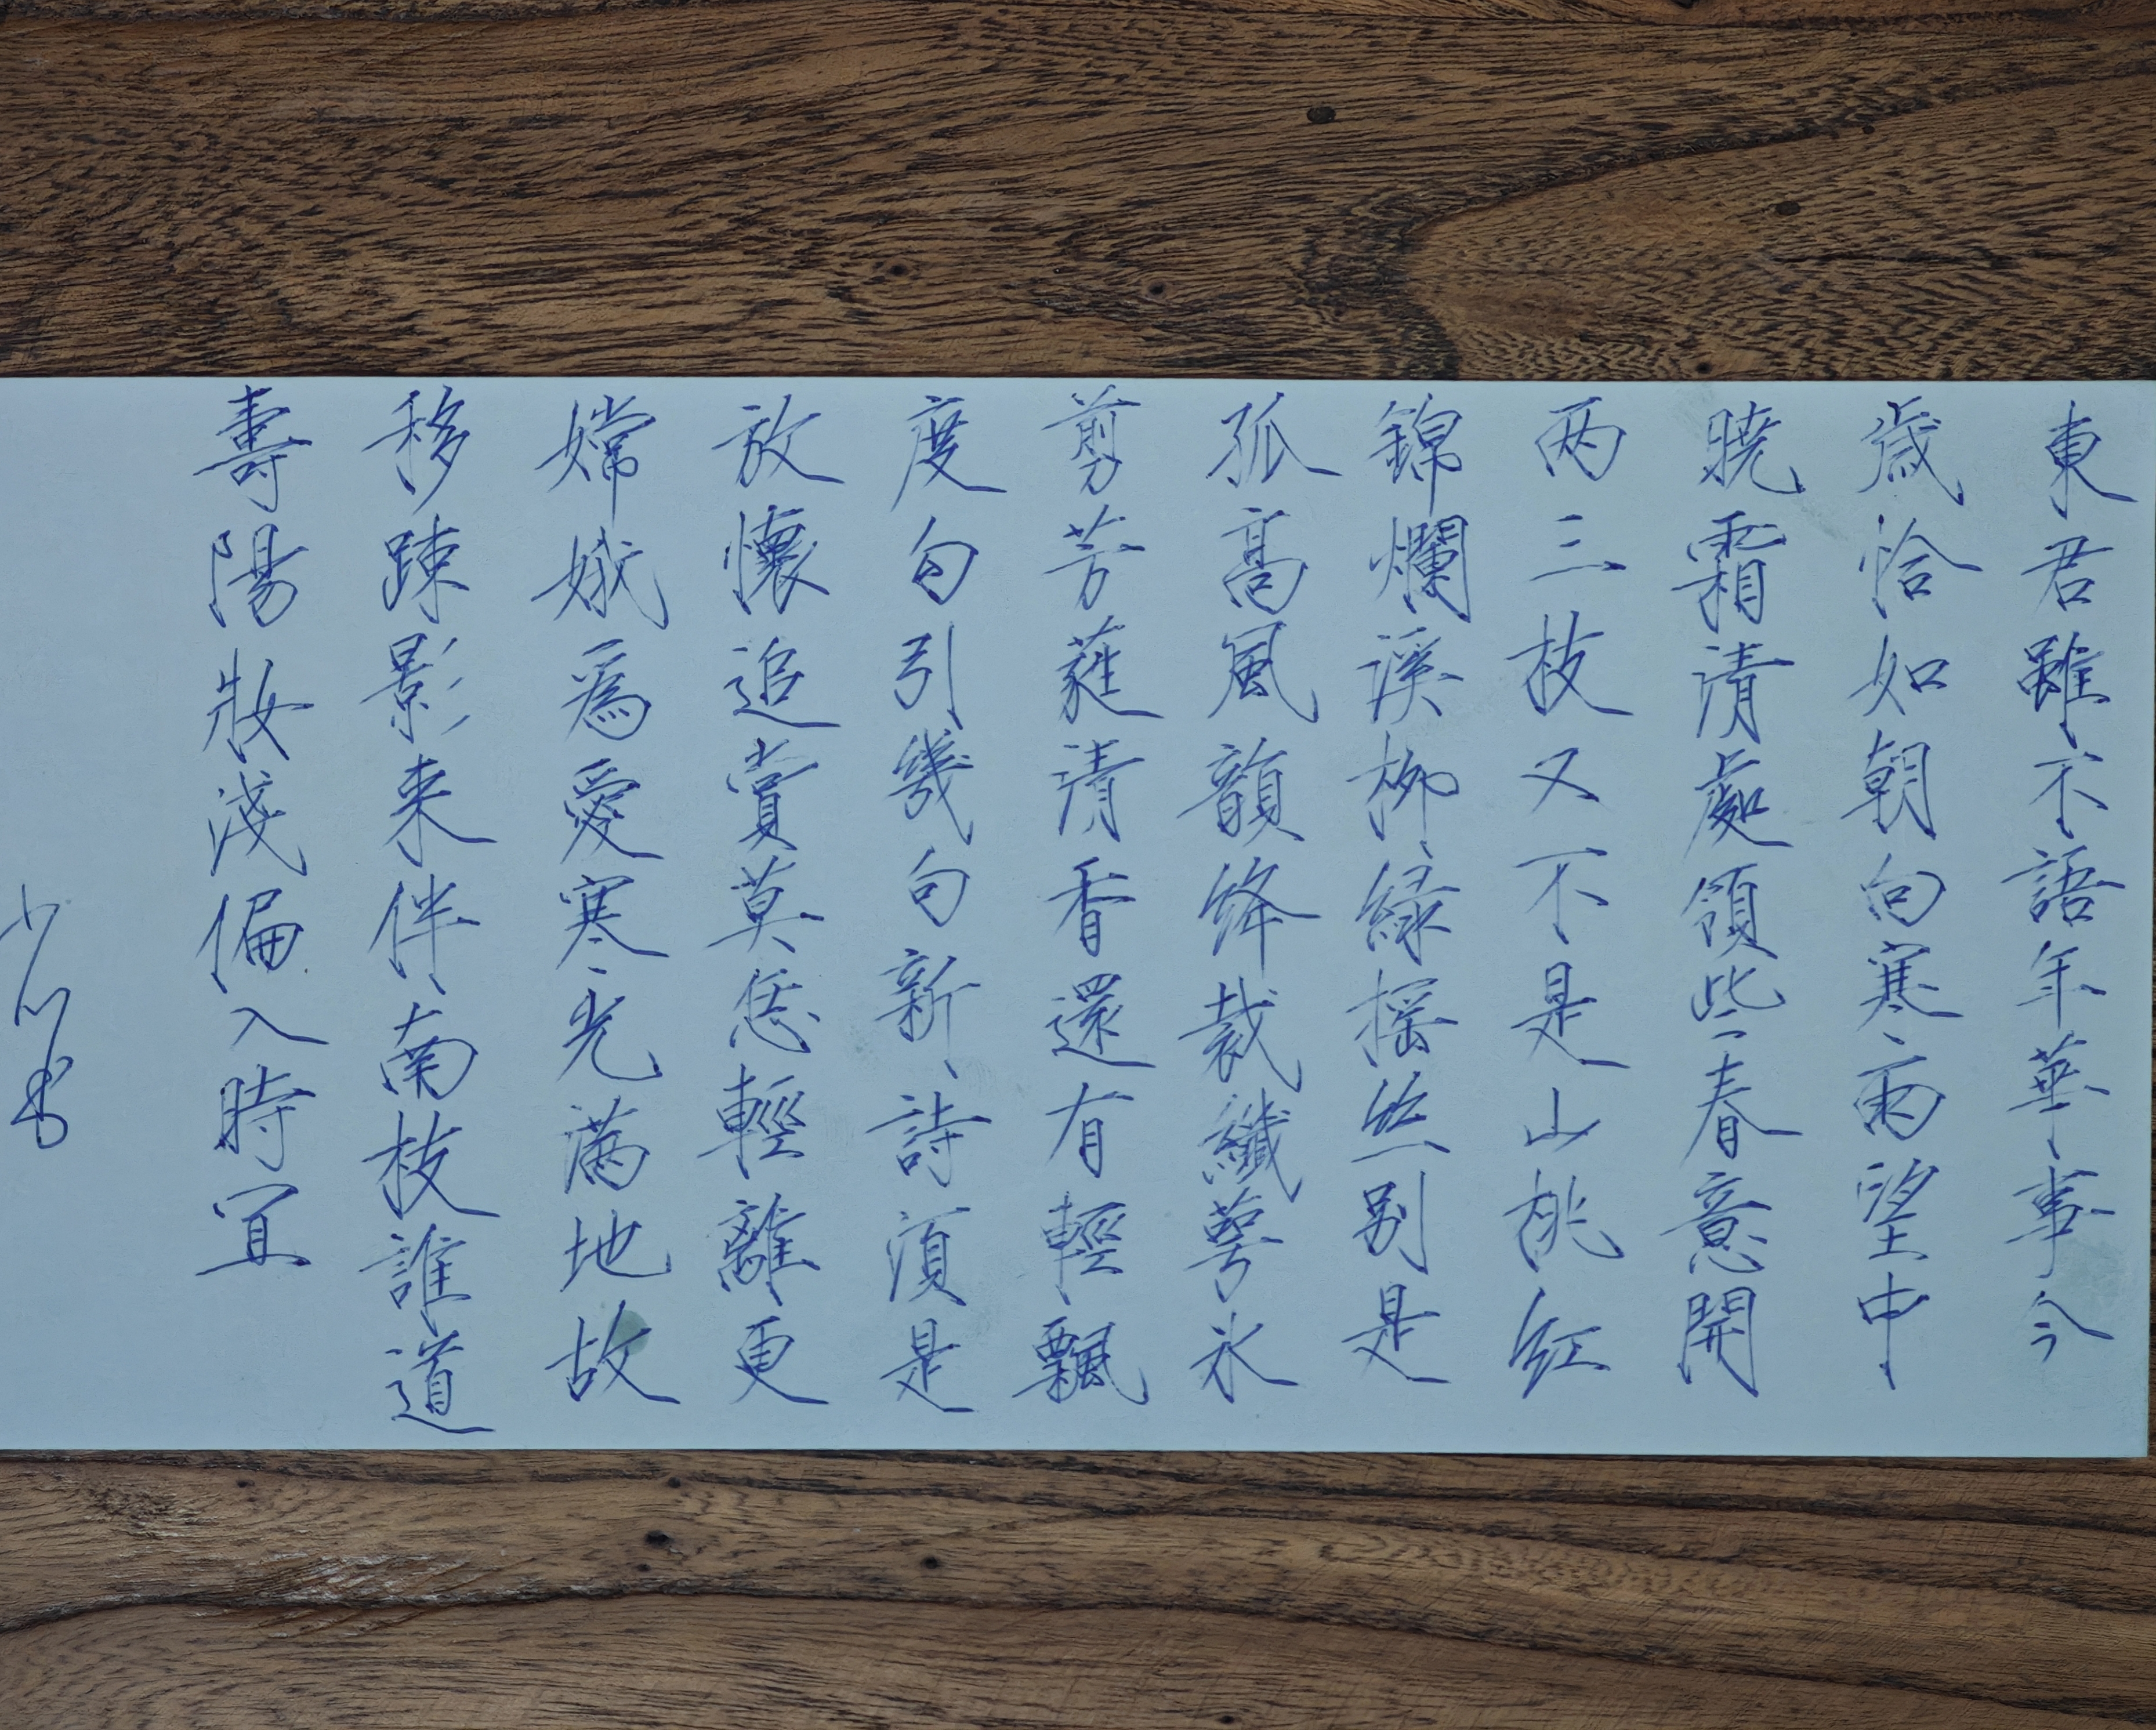 東君雖不語年華事今
歲恰如朝向寒雨望中
曉霜清處領些春意開
两三枝又不是山桃紅
錦爛溪柳緑摇丝别是
孤高風韻绛裁纖萼氷
剪芳蕤清香還有輕飄
度勾引幾句新詩須是
放懷追賞莫恁輕離更
嫦娥爲愛寒光满地故
移踈影来伴南枝誰道
壽陽妝淺偏入時宜